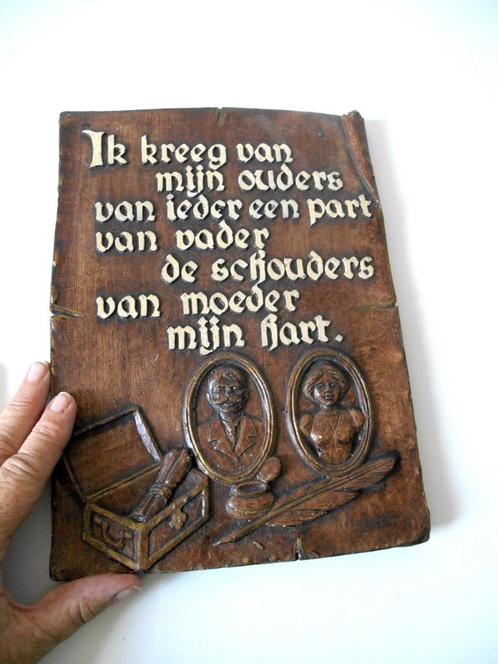 Ik kreeg van
mijn ouders
van ieder een part
van vader
de schouders
van moeder
mijn hart.